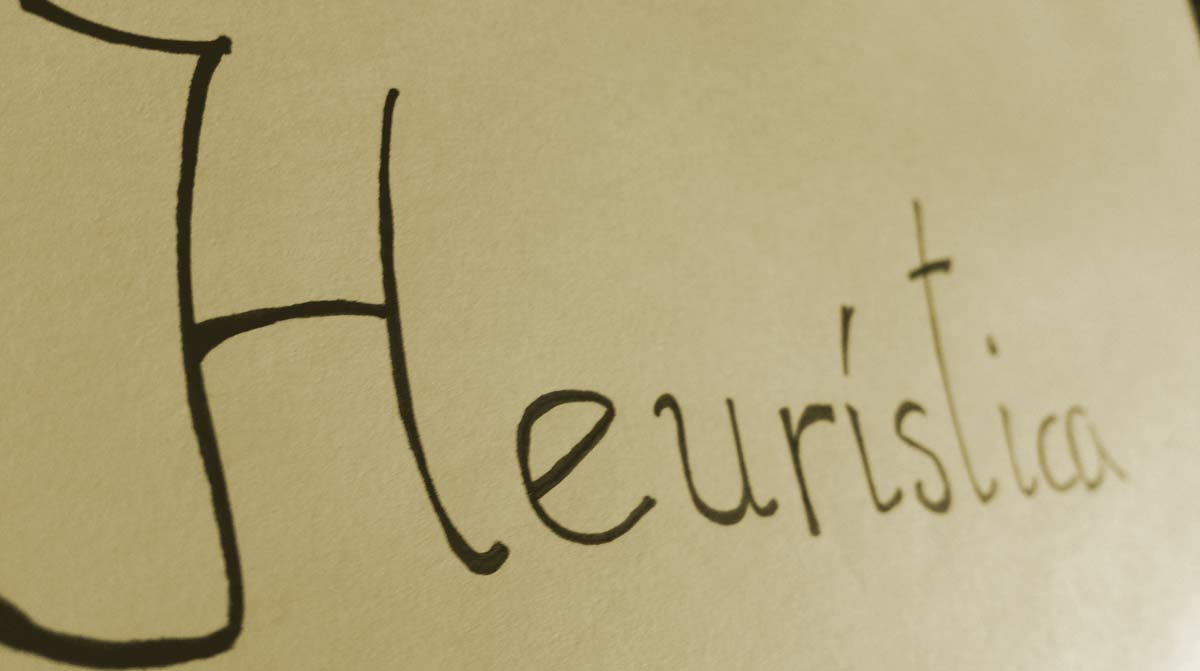 Heurística